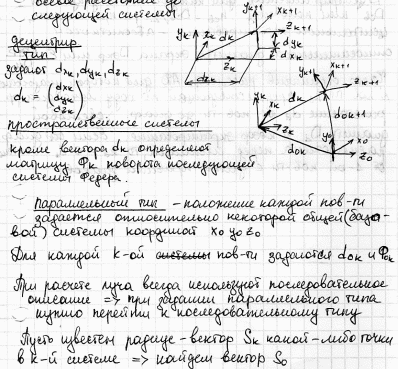 осевые расстояния до
следующей системы
децентрир.
тип
задают dxk, dyk, dzk
dk = (dxk dyk dzk)
yk xk zk dk dzk
yk+1 xk+1 zk+1 dyk dxk
пространственные системы
кроме вектора dk определяют
матрицу Фk поворота последующей
системы
yk xk zk dk yk+1 xk+1 zk+1
dok dok+1 y0 x0 z0
Параллельный тип – положение каждой пов-ти
задается относительно некоторой общей (базо-
вой) системы координат x0 y0 z0
Для каждой k-ой системы пов-ти задаются dok и Фok
При расчете луча всегда используют последовательное
описание => при задании параллельного типа
нужно перейти к последовательному типу
Пусть известен радиус-вектор Sk какой-либо точки
в k-й системе => найдем вектор S0